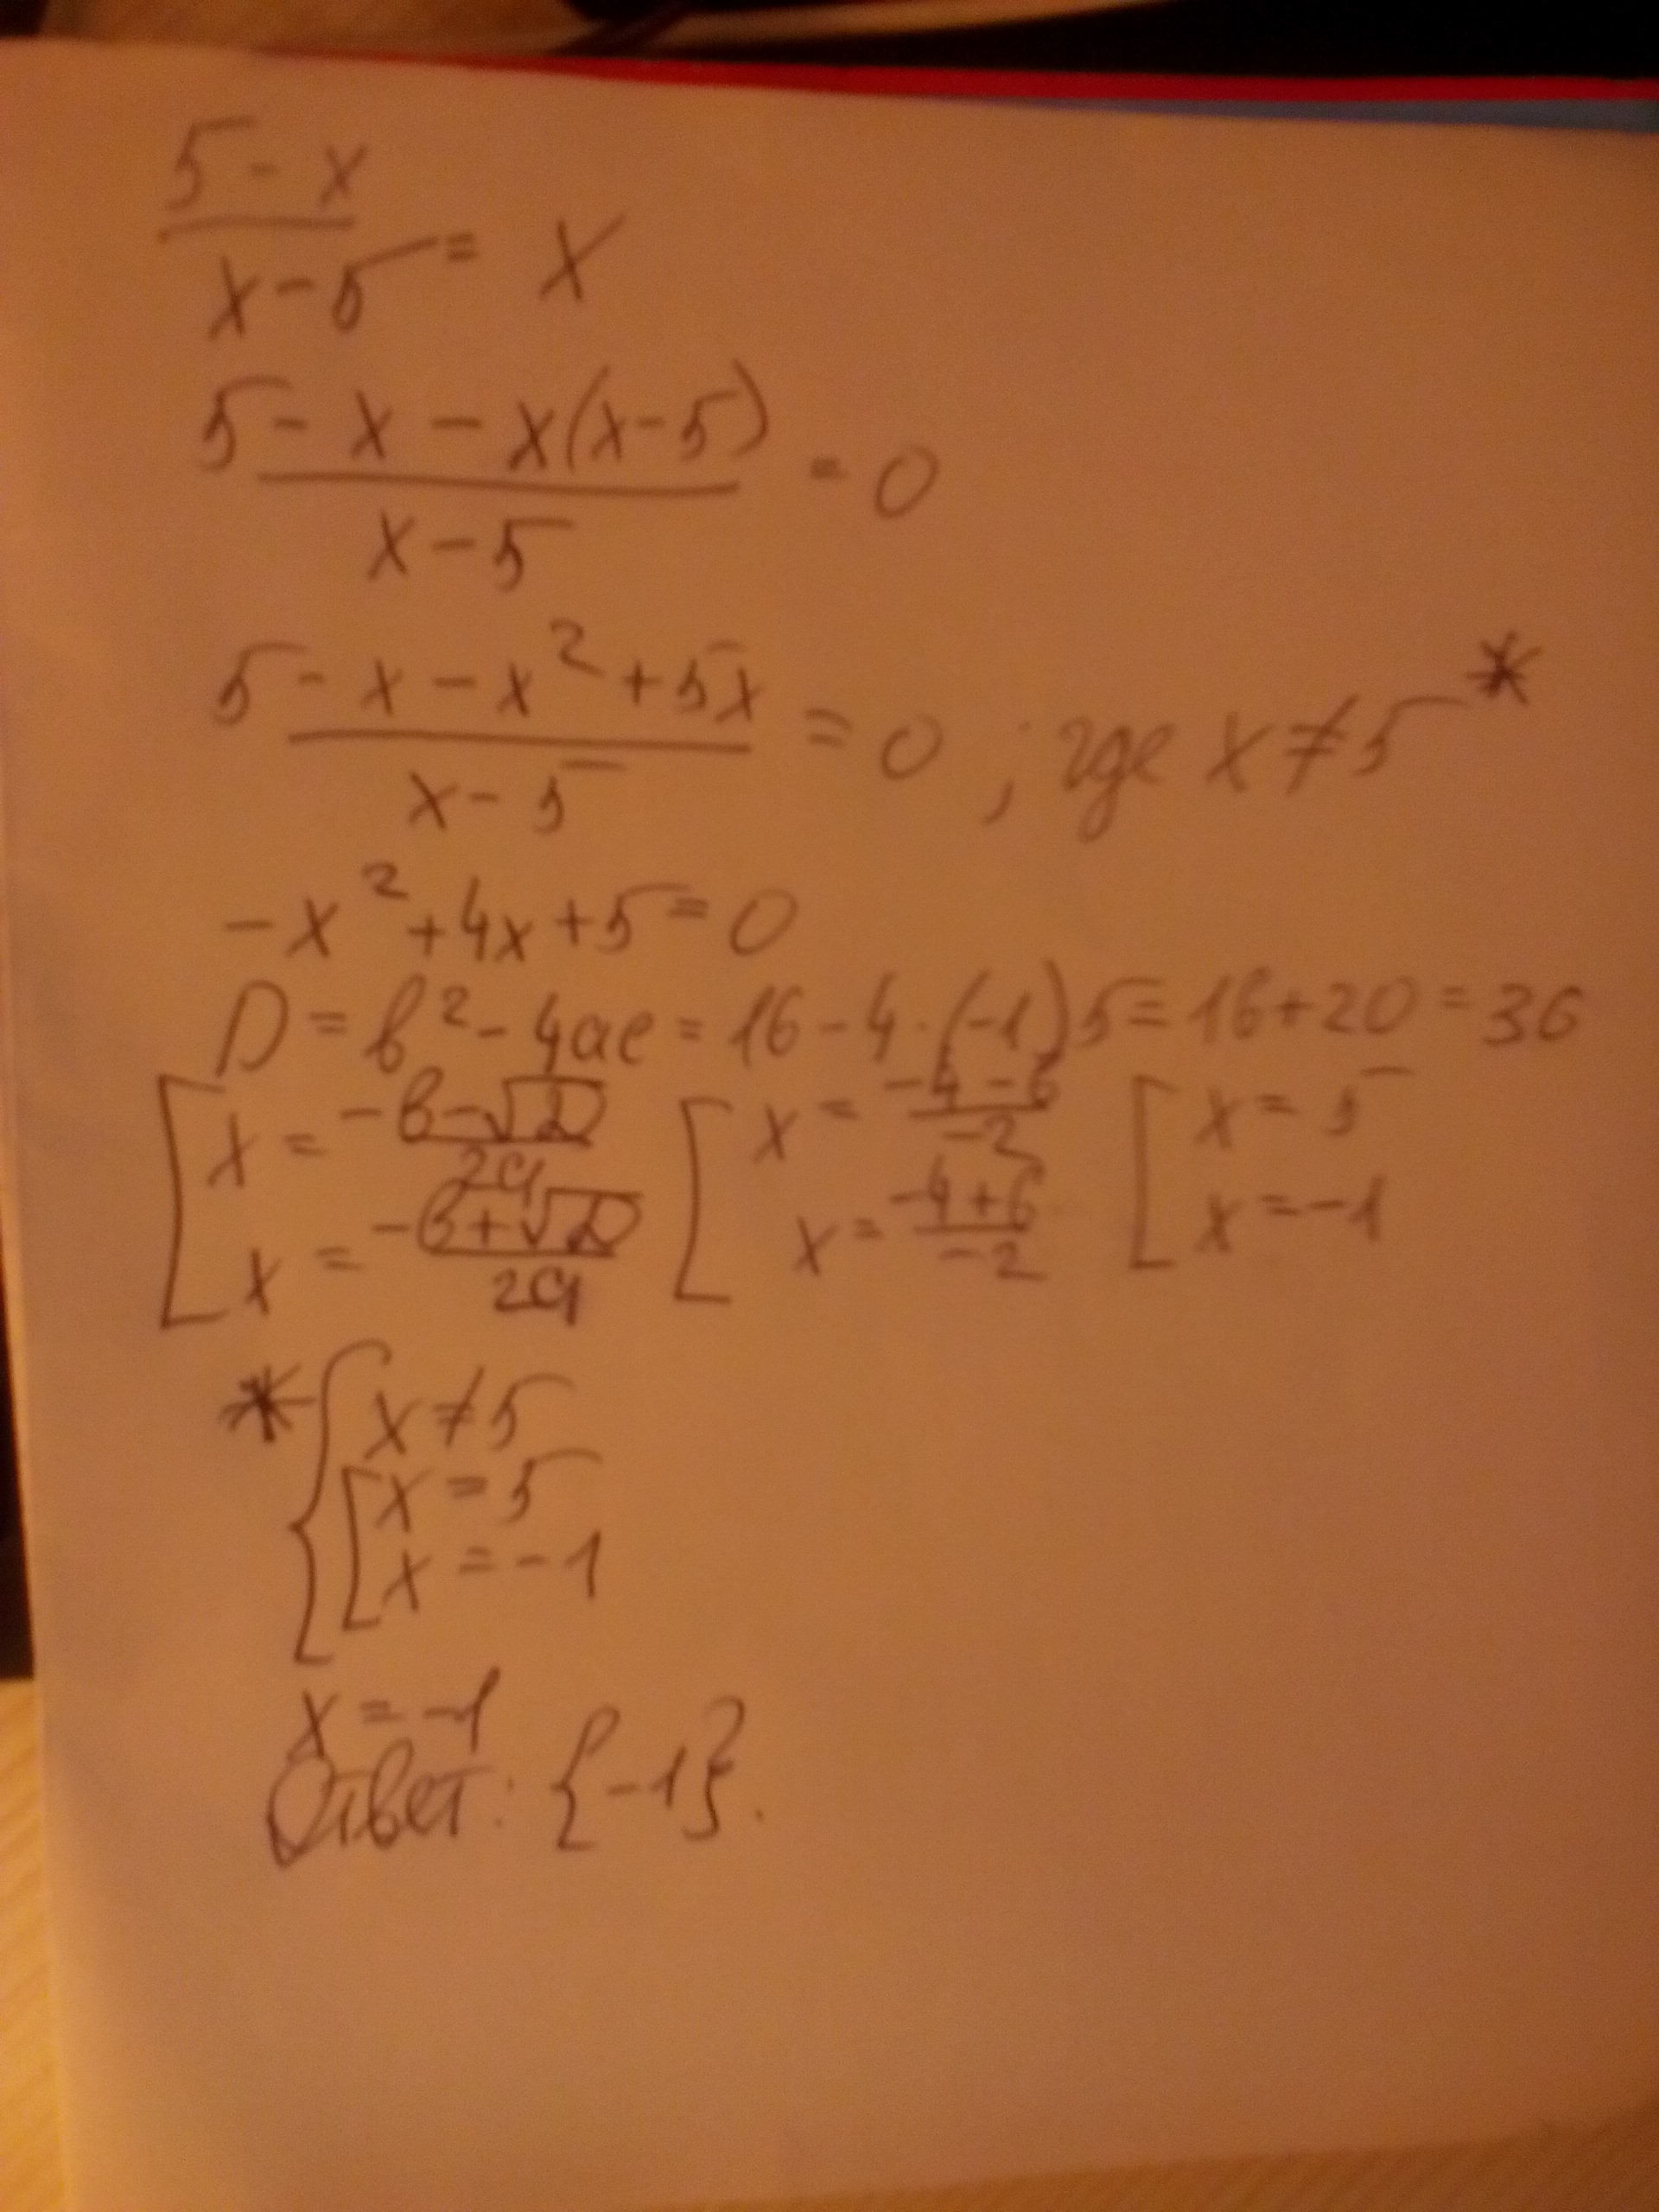 5 - x
x - 5 = x
5 - x - x(x-5)
x - 5 = 0
5 - x - x² + 5x
x - 5 = 0 ; где x ≠ 5 *
-x² + 4x + 5 = 0
D = b² - 4ac = 16 - 4·(-1)5 = 16 + 20 = 36
[ x = -b-√D / 2a [ x = -4-6 / -2 [ x = 5
x = -b+√D / 2a x = -4+6 / -2 x = -1
* { x ≠ 5
[ x = 5
x = -1
x = -1
Ответ: {-1}.